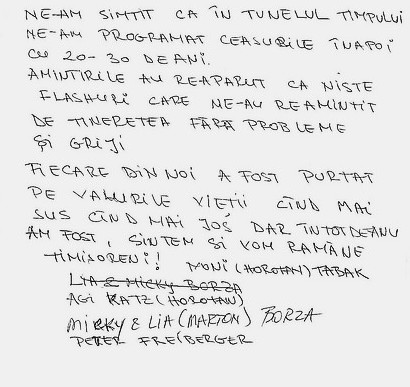 NE-AM SIMTIT CA ÎN TUNELUL TIMPULUI
NE-AM PROGRAMAT CEASURILE ÎNAPOI
CU 20-30 DE ANI.
AMINTIRILE AU REAPARUT CA NISTE
FLASHURI CARE NE-AU REAMINTIT
DE TINERETEA FĂRĂ PROBLEME
ȘI GRIJI
FIECARE DIN NOI A FOST PURTAT
PE VALURILE VIEȚII CÎND MAI
SUS CÎND MAI JOS DAR ÎNTOTDEANU
AM FOST, SÎNTEM ȘI VOM RAMÂNE
TIMIȘORENI! NONI (HOROTAN) TABAK
LIA & MICKY BORZA
AGI KATZ (HOROTAN)
MICKY & LIA (MARTON) BORZA
PETER FREIBERGER